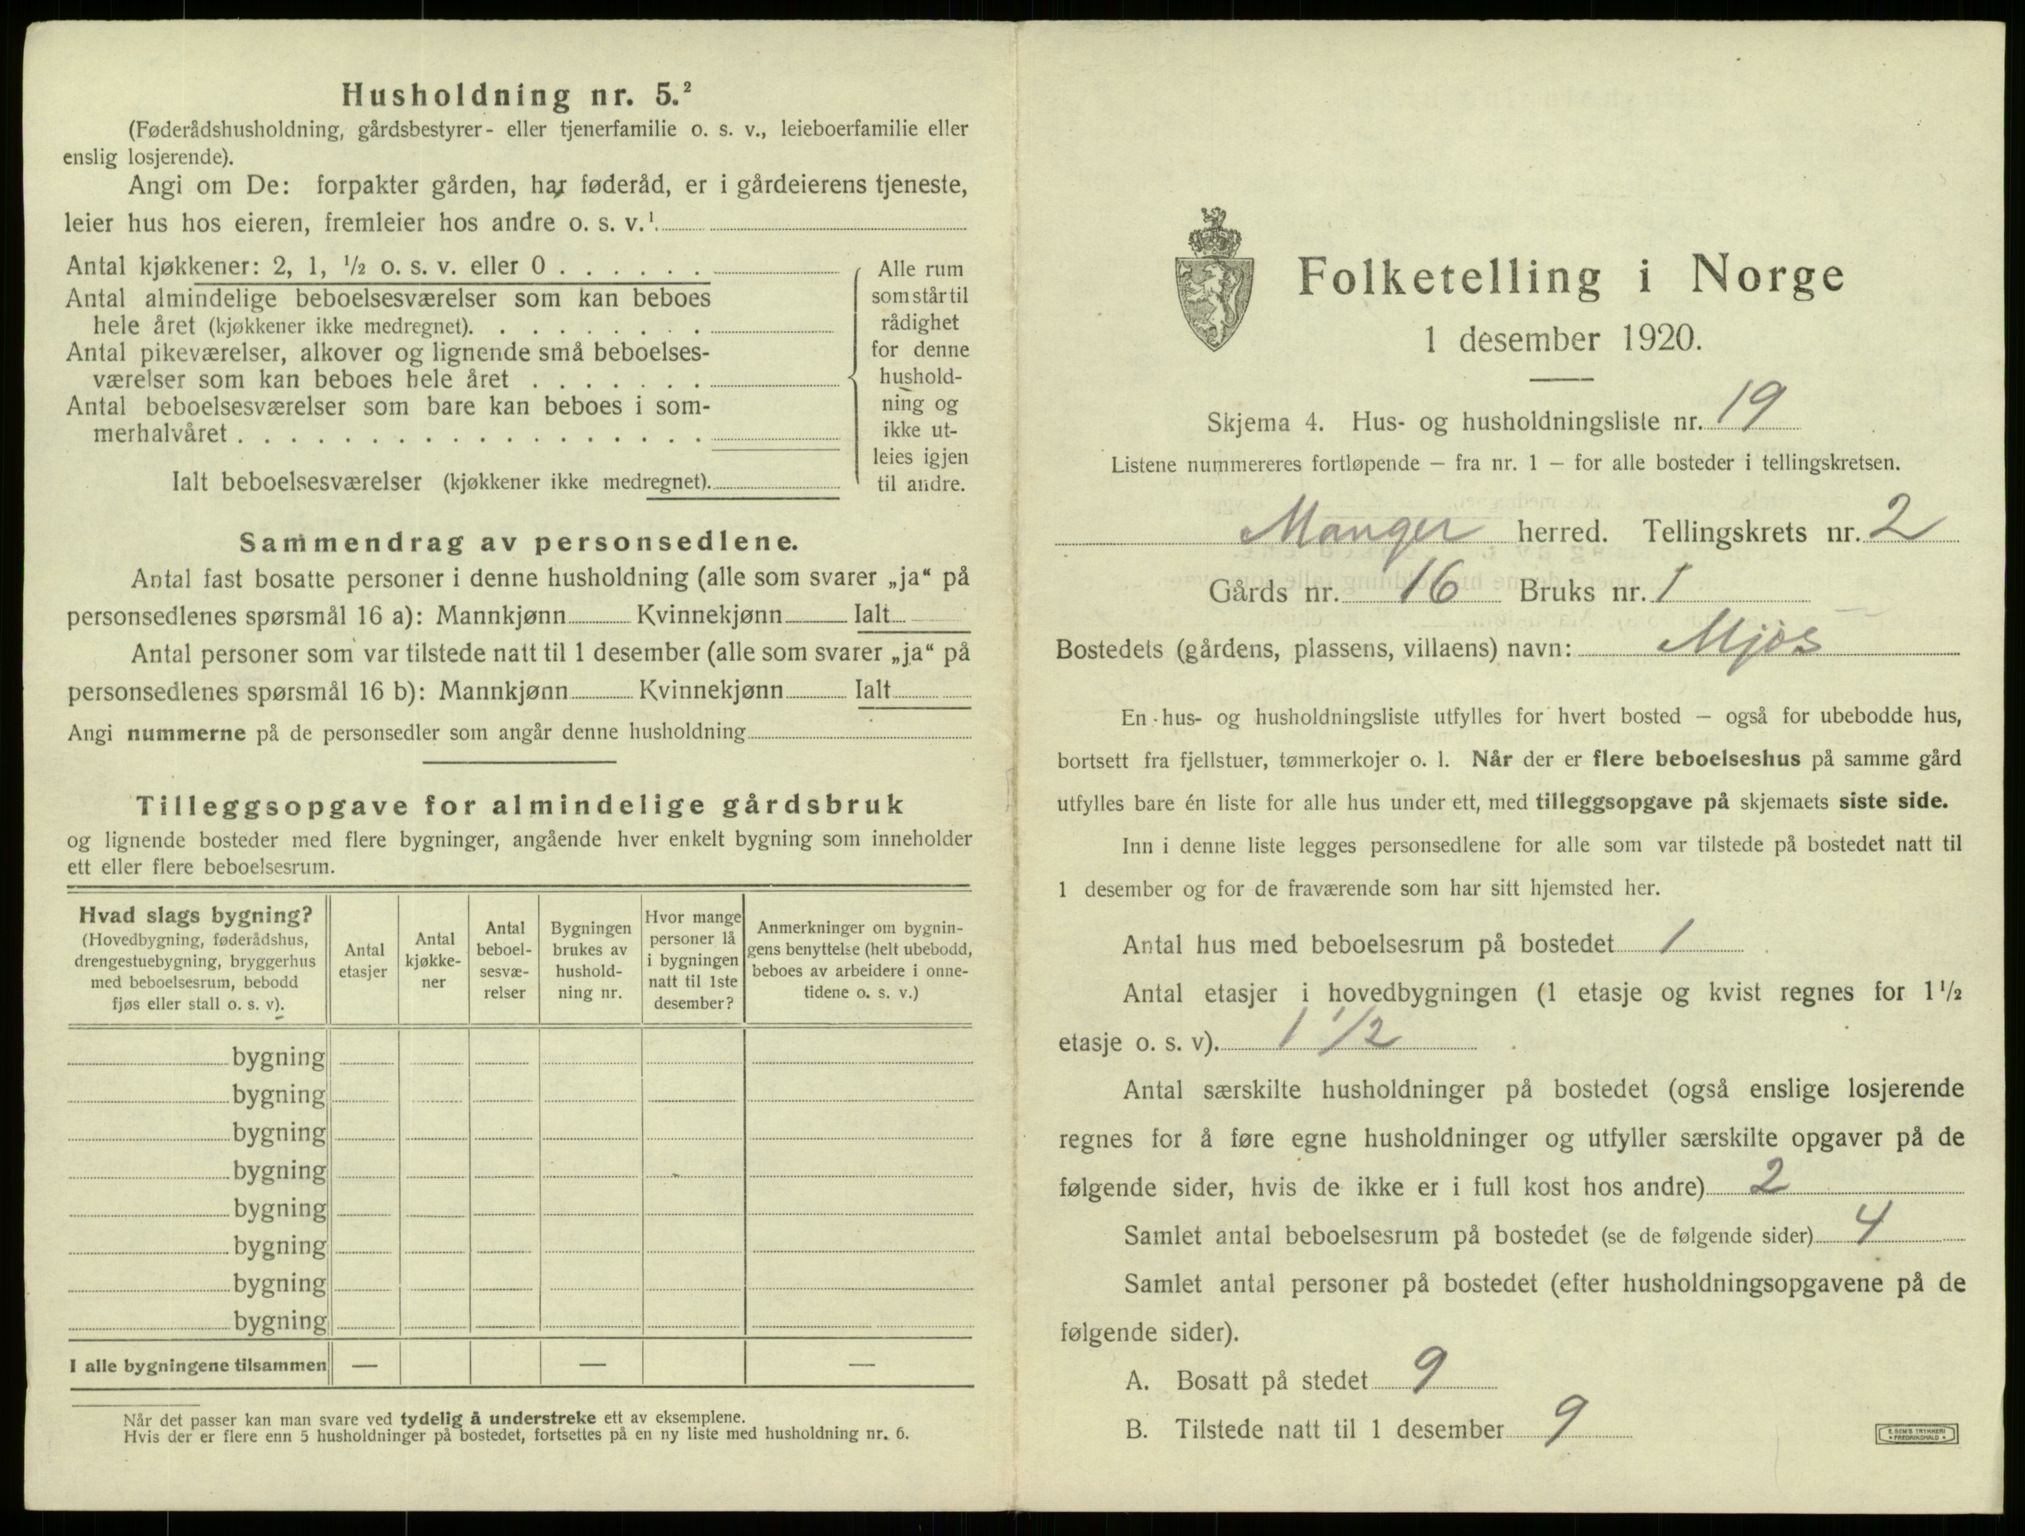 Husholdning nr. 5.²
(Føderådshusholdning, gårdsbestyrer- eller tjenerfamilie o. s. v., leieboerfamilie eller
enslig losjerende).
Angi om De: forpakter gården, har føderåd, er i gårdeierens tjeneste,
leier hus hos eieren, fremleier hos andre o. s. v.¹
Antal kjøkkener: 2, 1, ½ o. s. v. eller 0 . . . . . .
Antal almindelige beboelsesværelser som kan beboes
hele året (kjøkkener ikke medregnet). . . . . . . . .
Antal pikeværelser, alkover og lignende små beboelses-
værelser som kan beboes hele året . . . . . . .
Antal beboelsesværelser som bare kan beboes i som-
merhalvåret . . . . . . . . . . . . . . . . . .
Ialt beboelsesværelser (kjøkkener ikke medregnet).
Alle rum
som står til
rådighet
for denne
hushold-
ning og
ikke ut-
leies igjen
til andre.
Sammendrag av personsedlene.
Antal fast bosatte personer i denne husholdning (alle som svarer „ja“ på
personsedlenes spørsmål 16 a): Mannkjønn Kvinnekjønn Ialt
Antal personer som var tilstede natt til 1 desember (alle som svarer „ja“ på
personsedlenes spørsmål 16 b): Mannkjønn Kvinnekjønn Ialt
Angi nummerne på de personsedler som angår denne husholdning
Tilleggsopgave for almindelige gårdsbruk
og lignende bosteder med flere bygninger, angående hver enkelt bygning som inneholder
ett eller flere beboelsesrum.
Hvad slags bygning?
(Hovedbygning, føderådshus,
drengestuebygning, bryggerhus
med beboelsesrum, bebodd
fjøs eller stall o. s. v).
Antal
etasjer
Antal
kjøkke-
ner
Antal
beboel-
sesvæ-
relser
Bygningen
brukes av
hushold-
ning nr.
Hvor mange
personer lå
i bygningen
natt til 1ste
desember?
Anmerkninger om bygnin-
gens benyttelse (helt ubebodd,
beboes av arbeidere i onne-
tidene o. s. v.)
bygning
bygning
bygning
bygning
bygning
bygning
bygning
bygning
I alle bygningene tilsammen — — —
Når det passer kan man svare ved tydelig å understreke ett av eksemplene.
Hvis der er flere enn 5 husholdninger på bostedet, fortsettes på en ny liste med husholdning nr. 6.
Folketelling i Norge
1 desember 1920.
Skjema 4. Hus- og husholdningsliste nr. 19
Listene nummereres fortløpende – fra nr. 1 – for alle bosteder i tellingskretsen.
Manger herred. Tellingskrets nr. 2
Gårds nr. 16 Bruks nr. 1
Bostedets (gårdens, plassens, villaens) navn: Mjøs
En hus- og husholdningsliste utfylles for hvert bosted – også for ubebodde hus,
bortsett fra fjellstuer, tømmerkojer o. l. Når der er flere beboelseshus på samme gård
utfylles bare én liste for alle hus under ett, med tilleggsopgave på skjemaets siste side.
Inn i denne liste legges personsedlene for alle som var tilstede på bostedet natt til
1 desember og for de fraværende som har sitt hjemsted her.
Antal hus med beboelsesrum på bostedet 1
Antal etasjer i hovedbygningen (1 etasje og kvist regnes for 1½
etasje o. s. v). 1 1/2
Antal særskilte husholdninger på bostedet (også enslige losjerende
regnes for å føre egne husholdninger og utfyller særskilte opgaver på de
følgende sider, hvis de ikke er i full kost hos andre) 2
Samlet antal beboelsesrum på bostedet (se de følgende sider) 4
Samlet antal personer på bostedet (efter husholdningsopgavene på de
følgende sider).
A. Bosatt på stedet 9
B. Tilstede natt til 1 desember 9
E. SEM'S TRYKKERI
• FREDRIKSHALD •